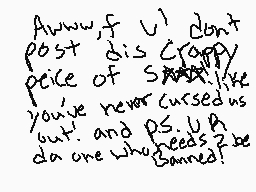 Awww, f u! don't
post dis crappy
peice of S*** like
you've never cursed us
out. and p.s. U R
da one who needs 2 be
Banned!